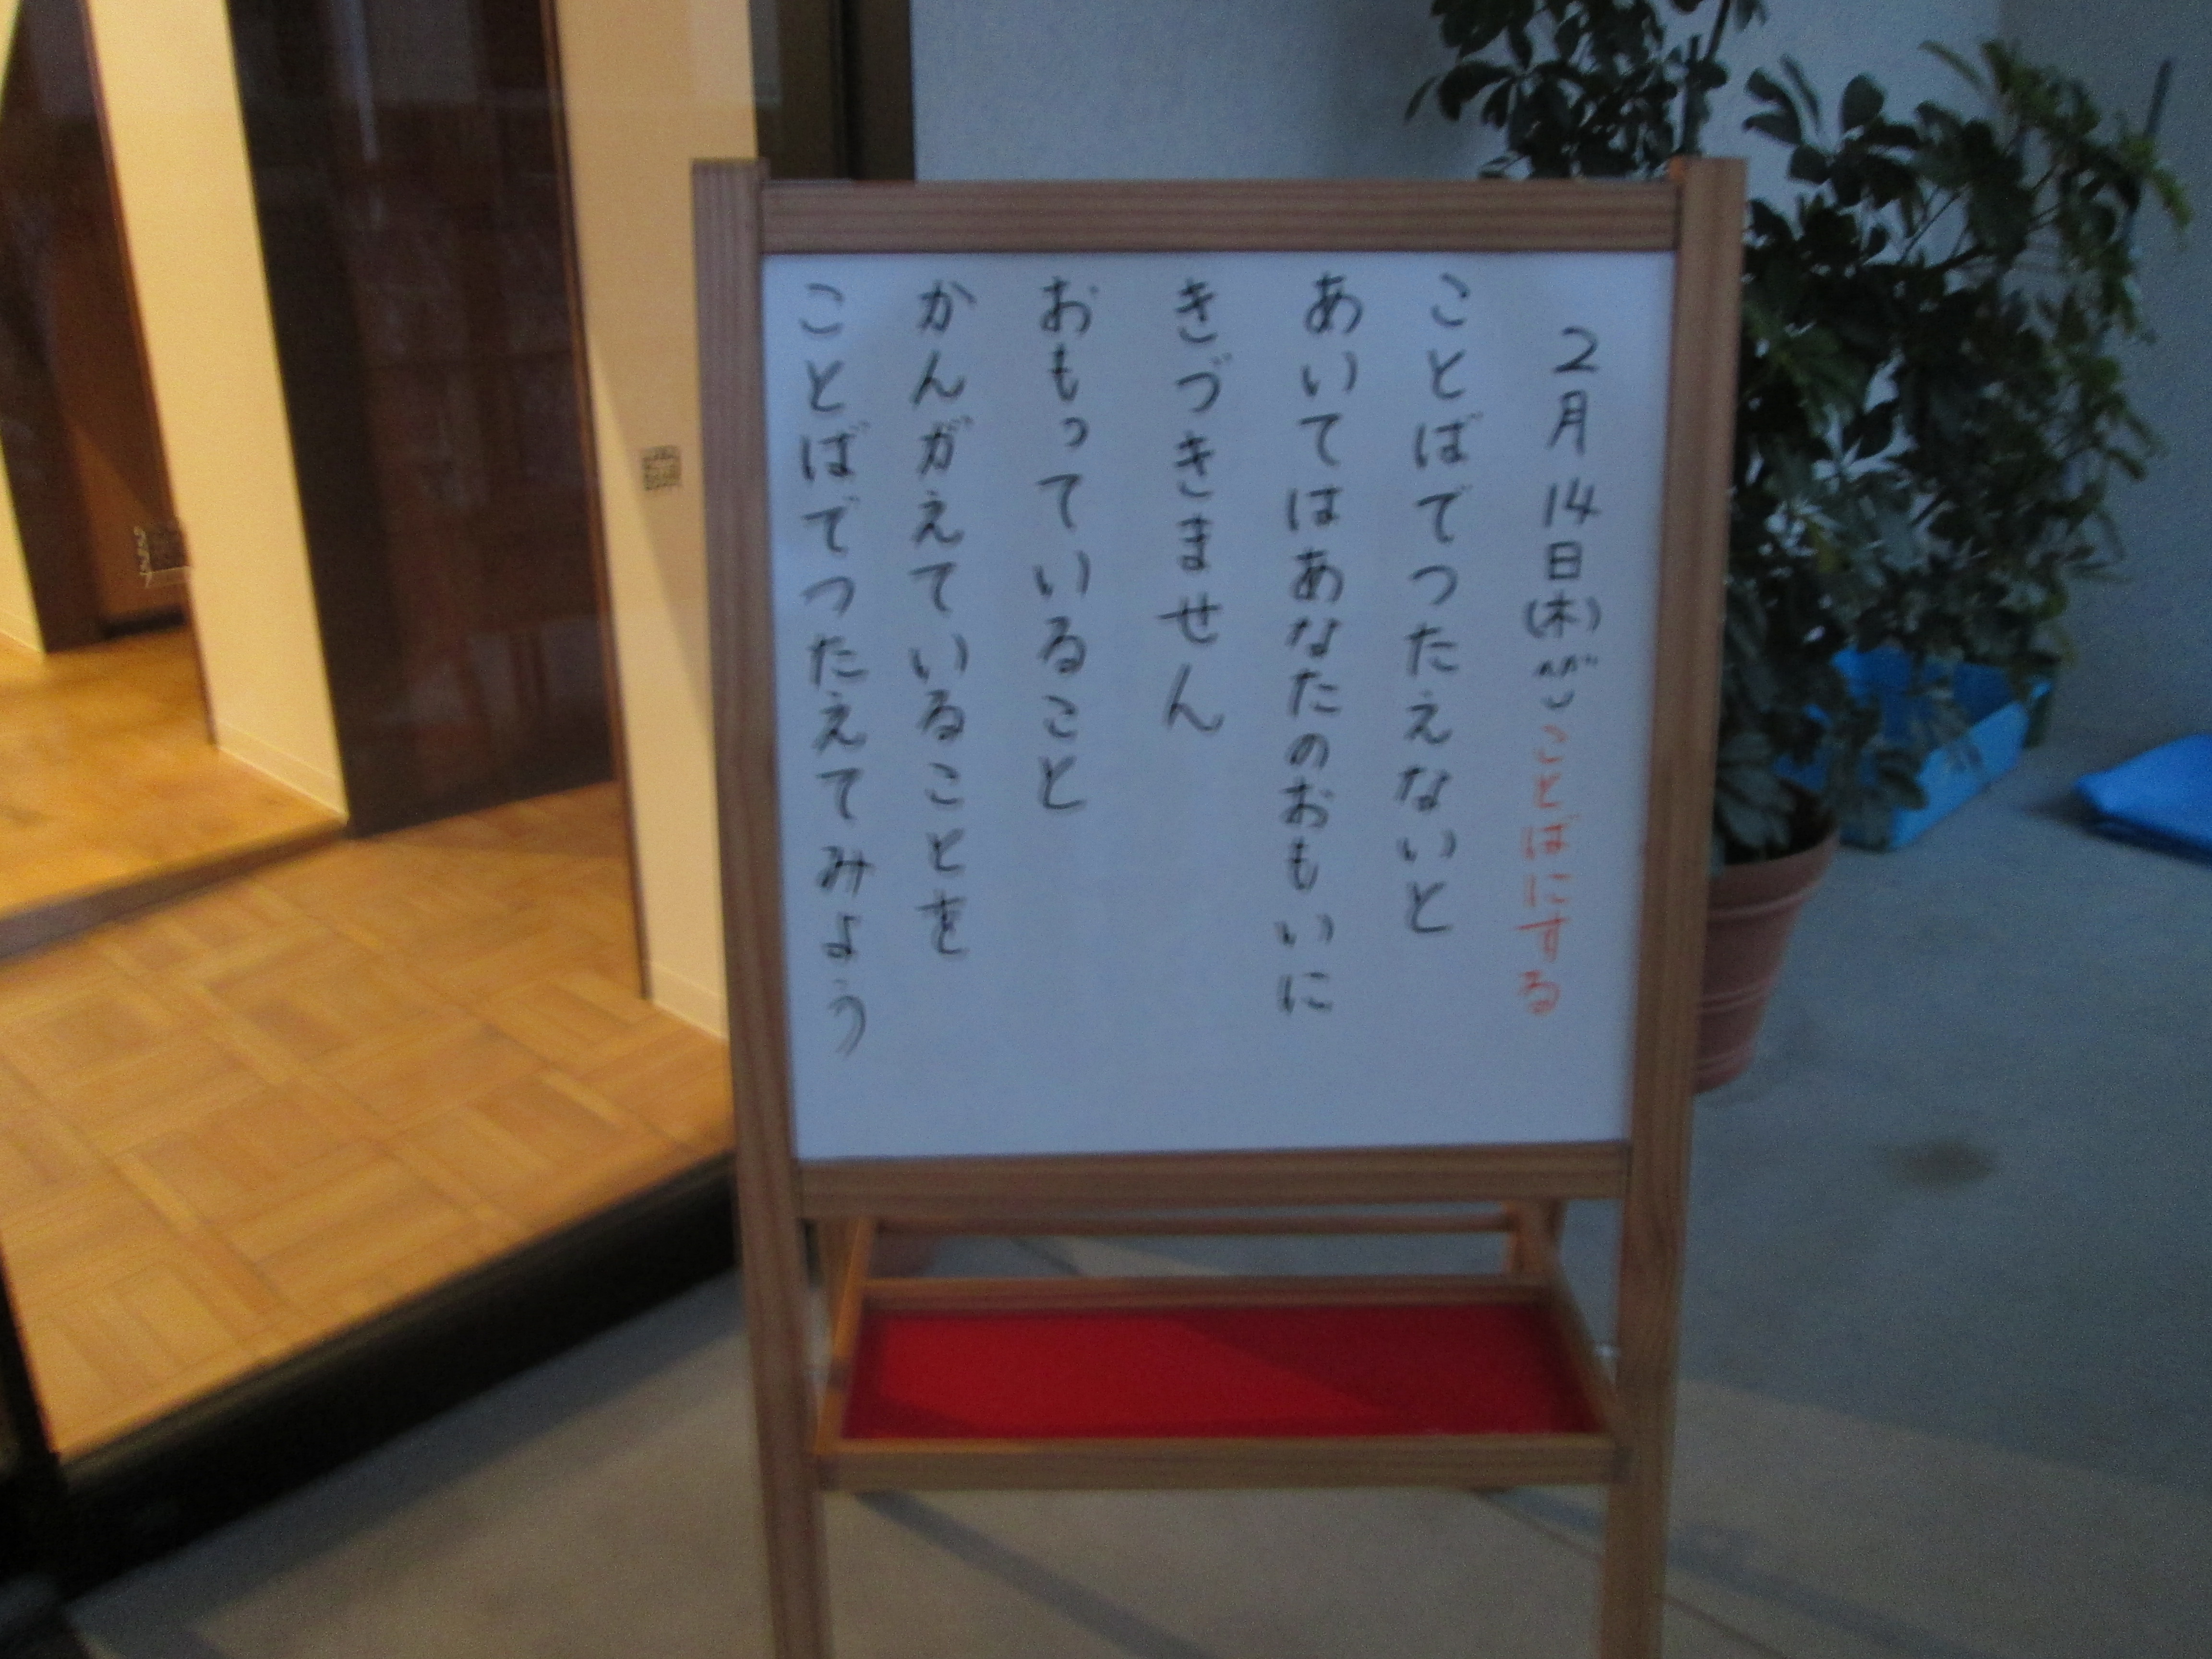 2月14日(木) ことばにする
ことばでつたえないと
あいてはあなたのおもいに
きづきません
おもっていること
かんがえていることを
ことばでつたえてみよう